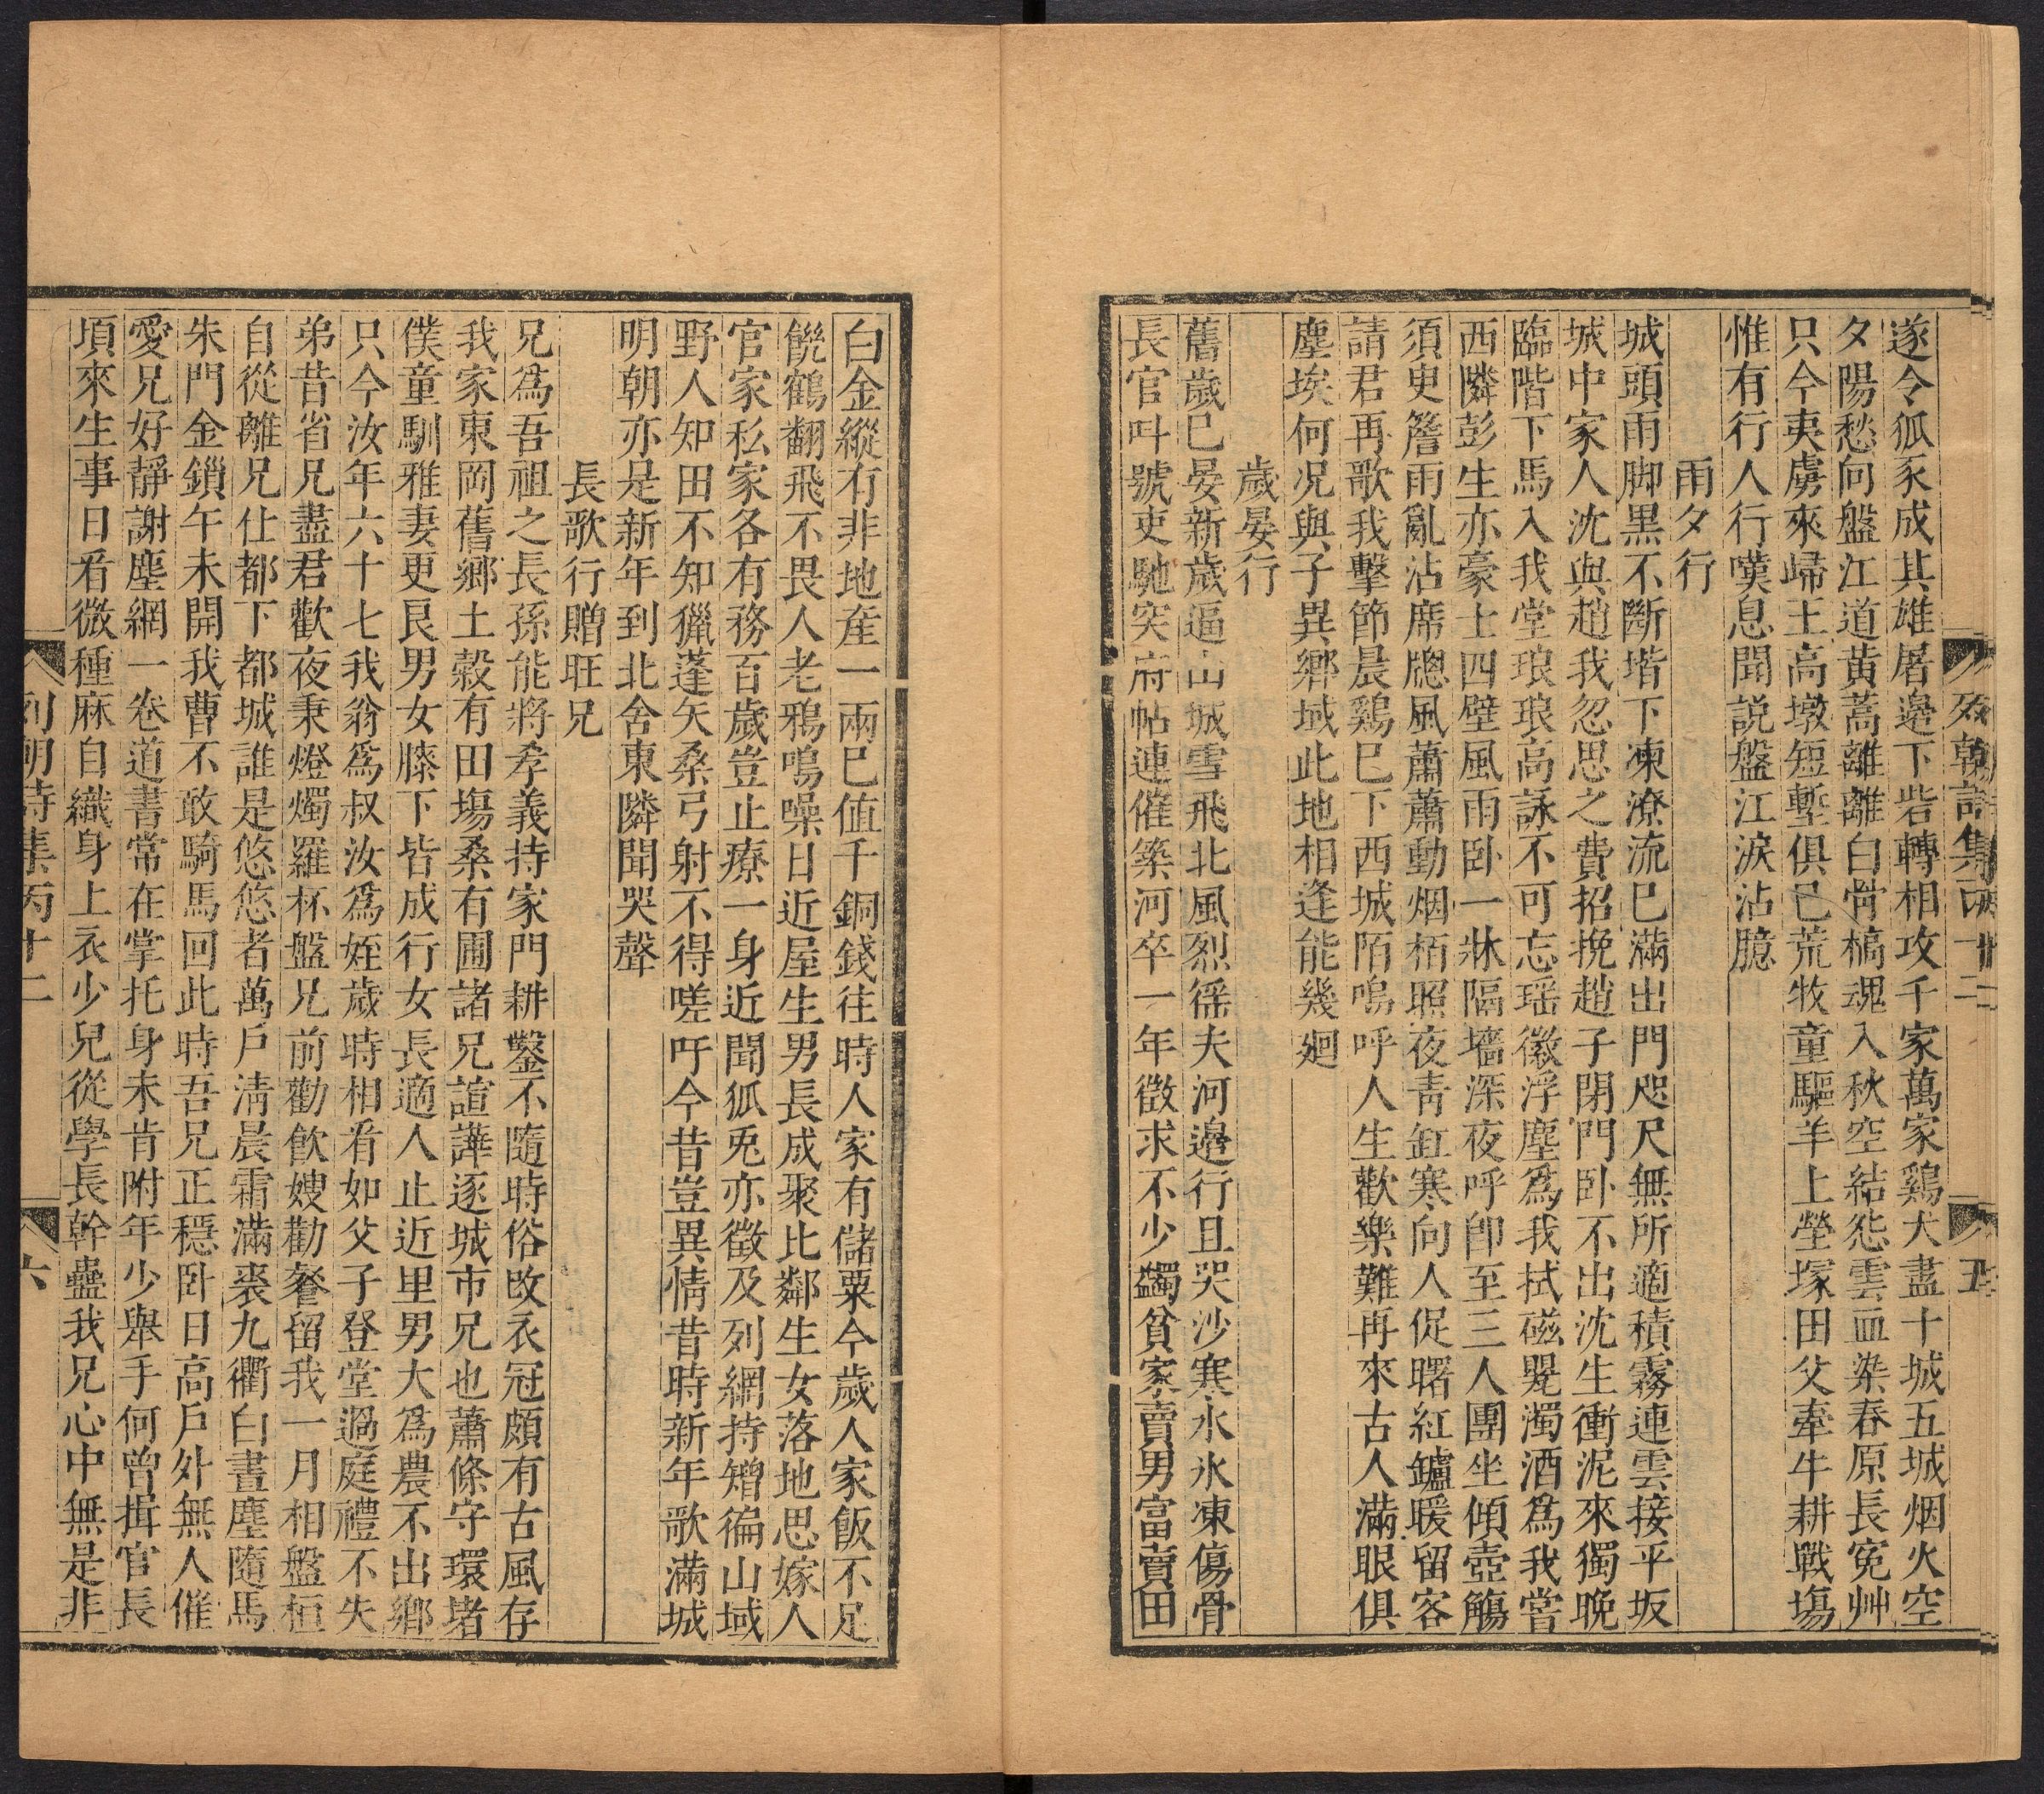 遂令狐豕成其雄屠邊下砦轉相攻千家萬家鷄犬盡十城五城烟火空
夕陽愁向盤江道黄蒿離離白骨槁魂入秋空結怨雲血染春原長寃艸
只今夷虜來歸王高墩短塹俱已荒牧童驅羊上塋塚田父牽牛耕戰塲
惟有行人行嘆息聞説盤江淚沾臆
雨夕行
城頭雨脚黒不斷堦下凍潦流已滿出門咫尺無所適積霧連雲接平坂
城中家人沈與趙我忽思之費招挽趙子閉門卧不出沈生衝泥來獨晚
臨階下馬入我堂琅琅高詠不可忘瑶徽浮塵爲我拭磁甖濁酒爲我嘗
西隣彭生亦豪士四壁風雨卧一牀隔墻深夜呼卽至三人團坐傾壺觴
須臾簷雨亂沾席牕風蕭蕭動烟栢照夜青缸寒向人促曙紅鑪暖留客
請君再歌我擊節晨鷄已下西城陌嗚呼人生歡樂難再來古人滿眼俱
塵埃何况與子異鄉域此地相逢能幾廻
歲晏行
舊歲已晏新歲逼山城雪飛北風烈徭夫河邊行且哭沙寒水氷凍傷骨
長官叫號吏馳突府帖連催築河卒一年徵求不少蠲貧家賣男富賣田
白金縱有非地産一兩已值千銅錢往時人家有儲粟今歲人家飯不足
饑鶴翻飛不畏人老鴉鳴噪日近屋生男長成聚比鄰生女落地思嫁人
官家私家各有務百歲豈止療一身近聞狐兎亦徵及列網持矰徧山域
野人知田不知獵蓬矢桑弓射不得嗟吁今昔豈異情昔時新年歌滿城
明朝亦是新年到北舍東隣聞哭聲
長歌行贈旺兄
兄爲吾祖之長孫能將孝義持家門耕鑿不隨時俗改衣冠頗有古風存
我家東岡舊鄉土榖有田塲桑有圃諸兄諠譁逐城市兄也蕭條守環堵
僕童馴雅妻更良男女膝下皆成行女長適人止近里男大爲農不出鄉
只今汝年六十七我翁爲叔汝爲姪歲時相看如父子登堂過庭禮不失
弟昔省兄盡君歡夜秉燈燭羅杯盤兄前勸飲嫂勸餐留我一月相盤桓
自從離兄仕都下都城誰是悠悠者萬戶淸晨霜滿裘九衢白晝塵隨馬
朱門金鎖午未開我曹不敢騎馬回此時吾兄正穩卧日高戶外無人催
愛兄好靜謝塵網一卷道書常在掌托身未肯附年少舉手何曾揖官長
項來生事日看微種麻自織身上衣少兒從學長幹蠱我兄心中無是非
列朝詩集丙十二
六
列朝詩集丙十二
五